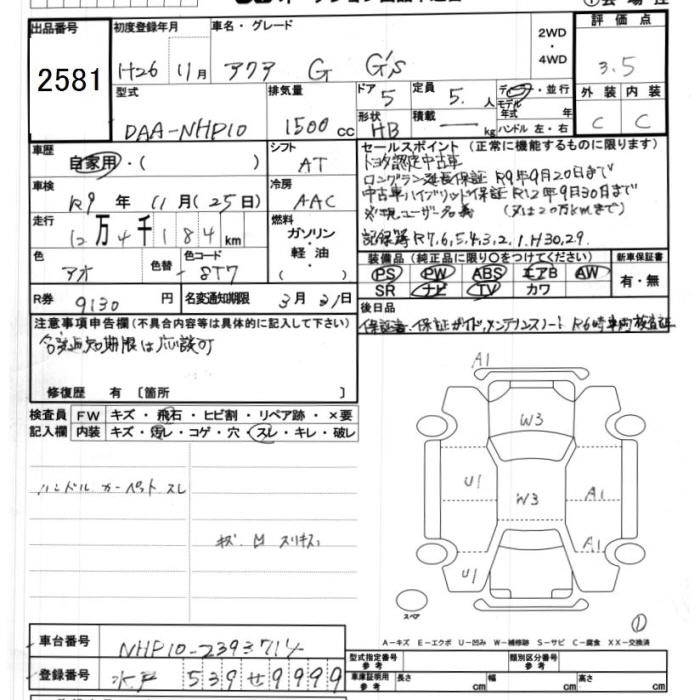 出品番号
2581
初度登録年月
H26 11月
車名・グレード
アクア G G's
2WD
・
4WD
評価点
3.5
型式
DAA-NHP10
排気量
1500 cc
ドア
5
定員
5. 人
形状
HB
積載
kg
ディーラー・並行
モデル年式 年
ハンドル 左・右
外装 内装
C C
車歴
自家用・( )
シフト
AT
車検
R9 年 11月(25日)
冷房
AAC
走行
12万4千184km
燃料
ガソリン
・
軽油
( )
色
アオ
色替
色コード
8T7
R券
9130 円
名変通知期限
3月31日
セールスポイント(正常に機能するものに限ります)
トヨタ認定中古車
ロングラン延長保証 R9年9月20日まで
中古車ハイブリッド保証 R12年9月30日まで
(又は20万kmまで)
記録簿 R7,6,5,4,3,2,1,H30,29.
装備品(純正品に限り○をつけてください)
PS PW ABS エアB AW
SR ナビ TV カワ
新車保証書
有・無
後日品
保証書、保証ガイド、メンテナンスノート
注意事項申告欄(不具合内容等は具体的に記入して下さい)
修復歴 有 〔箇所 〕
検査員
記入欄
FW キズ・飛石・ヒビ割・リペア跡・×要
内装 キズ・汚レ・コゲ・穴・スレ・キレ・破レ
ハンドル カーペット スレ
キズ 凹 スリキズ
A1
W3
U1
W3
A1
A1
U1
スペア
①
A-キズ E-エクボ U-凹み W-補修跡 S-サビ C-腐食 XX-交換済
車台番号
NHP10-2393714
登録番号
水戸 539 せ 9999
型式指定番号
参考
類別区分番号
参考
車庫証明用
参考
長さ cm 幅 cm 高さ cm